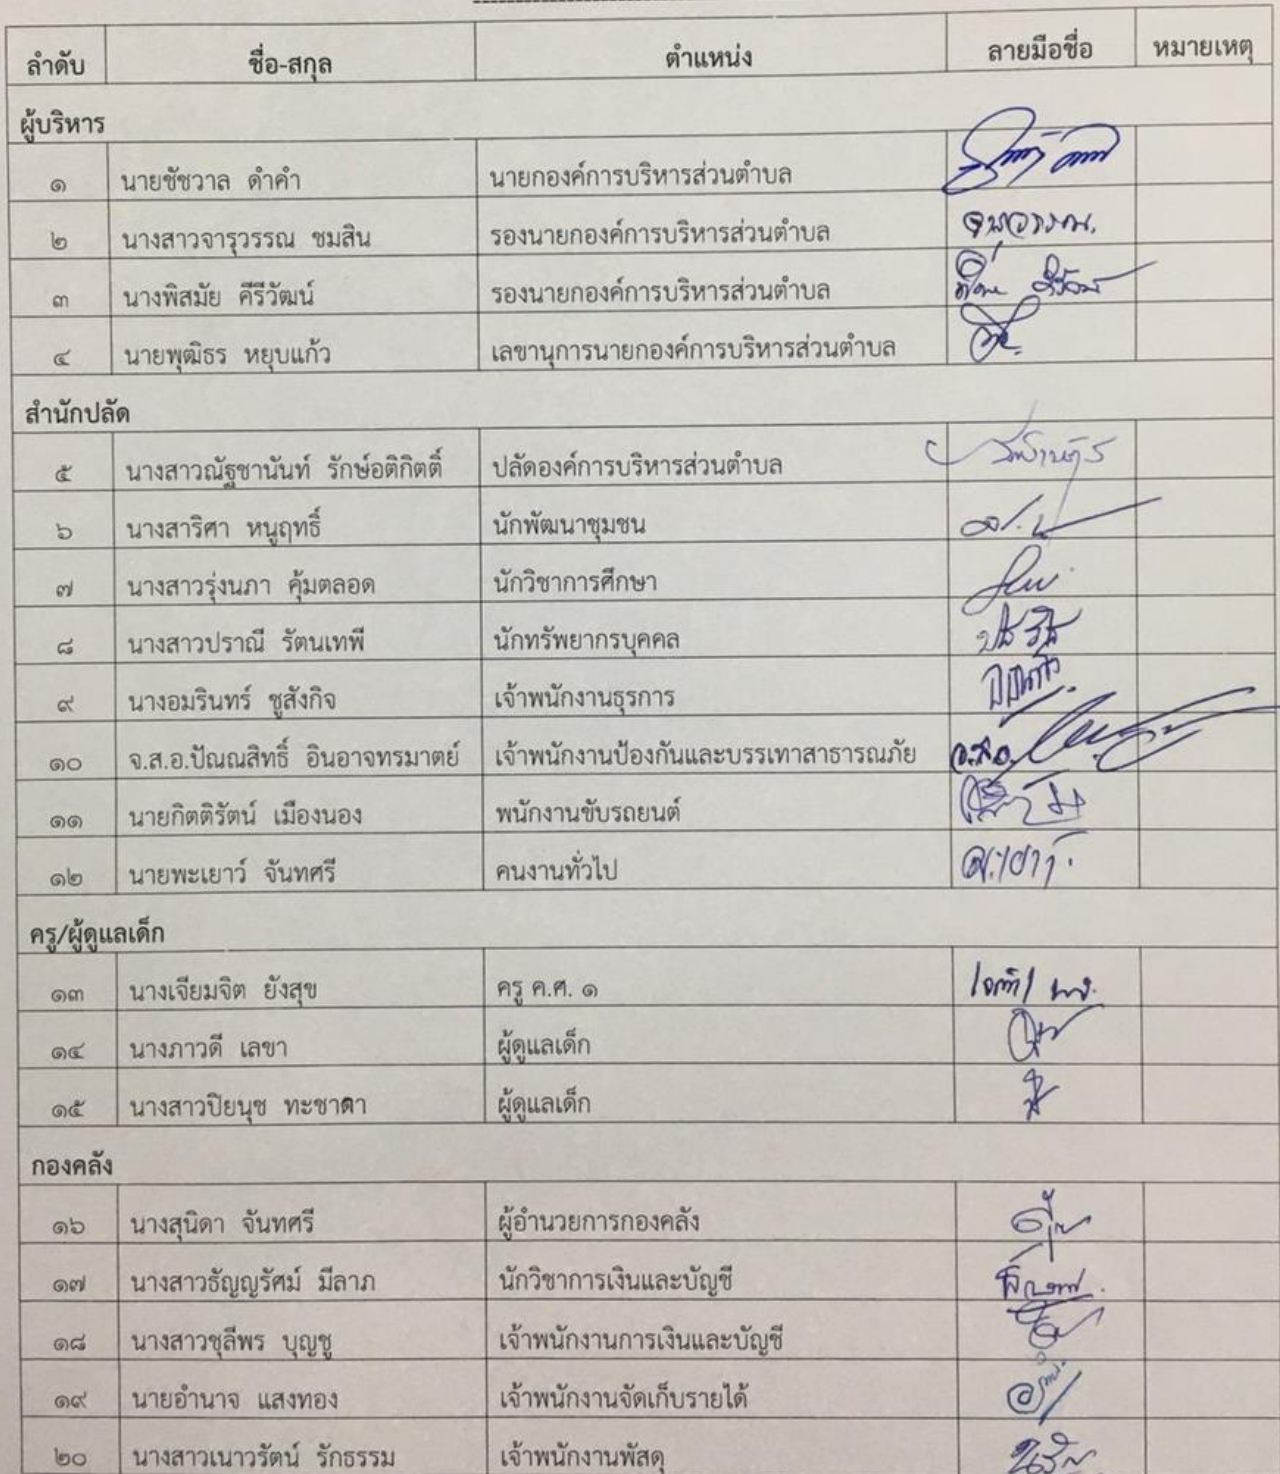 ลำดับ ชื่อ-สกุล ตำแหน่ง ลายมือชื่อ หมายเหตุ
ผู้บริหาร
๑ นายชัชวาล ดำคำ นายกองค์การบริหารส่วนตำบล
๒ นางสาวจารุวรรณ ชมสิน รองนายกองค์การบริหารส่วนตำบล จารุวรรณ.
๓ นางพิสมัย คีรีวัฒน์ รองนายกองค์การบริหารส่วนตำบล
๔ นายพุฒิธร หยุบแก้ว เลขานุการนายกองค์การบริหารส่วนตำบล
สำนักปลัด
๕ นางสาวณัฐชานันท์ รักษ์อติกิตติ์ ปลัดองค์การบริหารส่วนตำบล
๖ นางสาริศา หนูฤทธิ์ นักพัฒนาชุมชน
๗ นางสาวรุ่งนภา คุ้มตลอด นักวิชาการศึกษา
๘ นางสาวปราณี รัตนเทพี นักทรัพยากรบุคคล
๙ นางอมรินทร์ ชูสังกิจ เจ้าพนักงานธุรการ
๑๐ จ.ส.อ.ปัณณสิทธิ์ อินอาจทรมาตย์ เจ้าพนักงานป้องกันและบรรเทาสาธารณภัย จ.ส.อ.
๑๑ นายกิตติรัตน์ เมืองนอง พนักงานขับรถยนต์
๑๒ นายพะเยาว์ จันทศรี คนงานทั่วไป
ครู/ผู้ดูแลเด็ก
๑๓ นางเจียมจิต ยังสุข ครู ค.ศ. ๑
๑๔ นางภาวดี เลขา ผู้ดูแลเด็ก
๑๕ นางสาวปิยนุช ทะชาดา ผู้ดูแลเด็ก
กองคลัง
๑๖ นางสุนิดา จันทศรี ผู้อำนวยการกองคลัง
๑๗ นางสาวธัญญรัศม์ มีลาภ นักวิชาการเงินและบัญชี
๑๘ นางสาวชุลีพร บุญชู เจ้าพนักงานการเงินและบัญชี
๑๙ นายอำนาจ แสงทอง เจ้าพนักงานจัดเก็บรายได้
๒๐ นางสาวเนาวรัตน์ รักธรรม เจ้าพนักงานพัสดุ